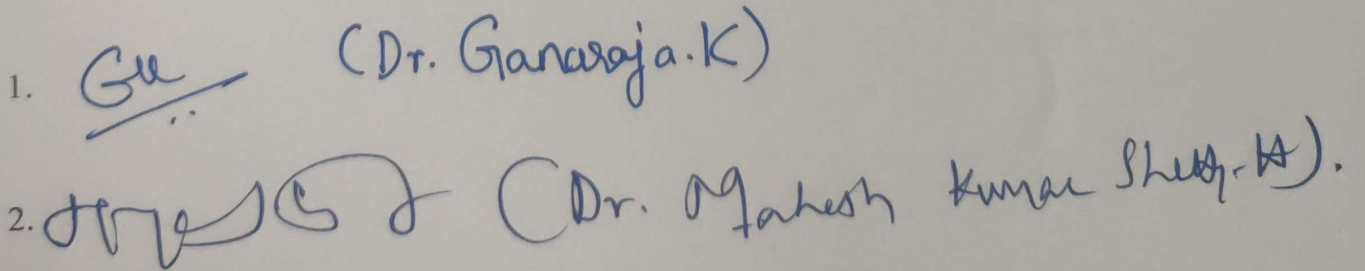 1. (Dr. Ganaraja.K)
2. (Dr. Mahesh Kumar Shetty.H).